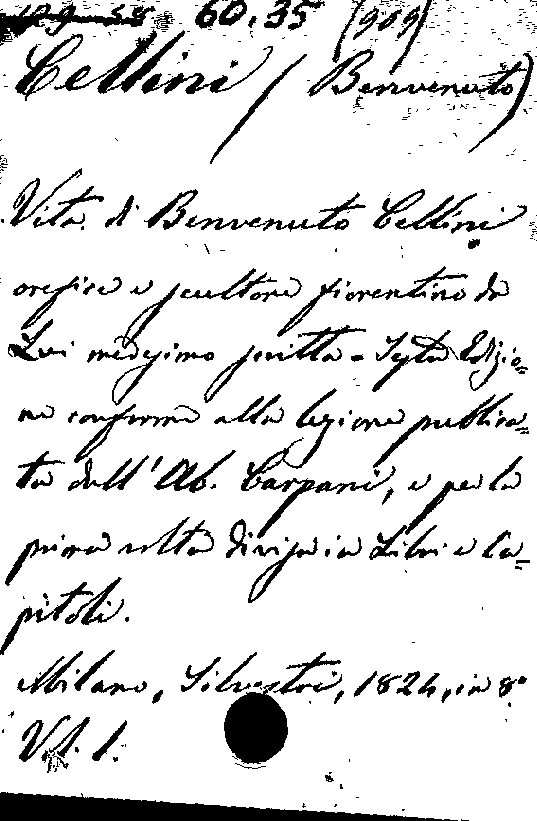 60.35 (909)
Cellini (Benvenuto)
Vita di Benvenuto Cellini
orefice e scultore fiorentino da
Lui medesimo scritta - Sesta Edizio=
ne conforme alla lezione pubblica=
ta dall'Ab. Carpani, e per la
prima volta divisa in Libri e Ca=
pitoli.
Milano, Silvestri, 1824, in 8°
Vol. 1.